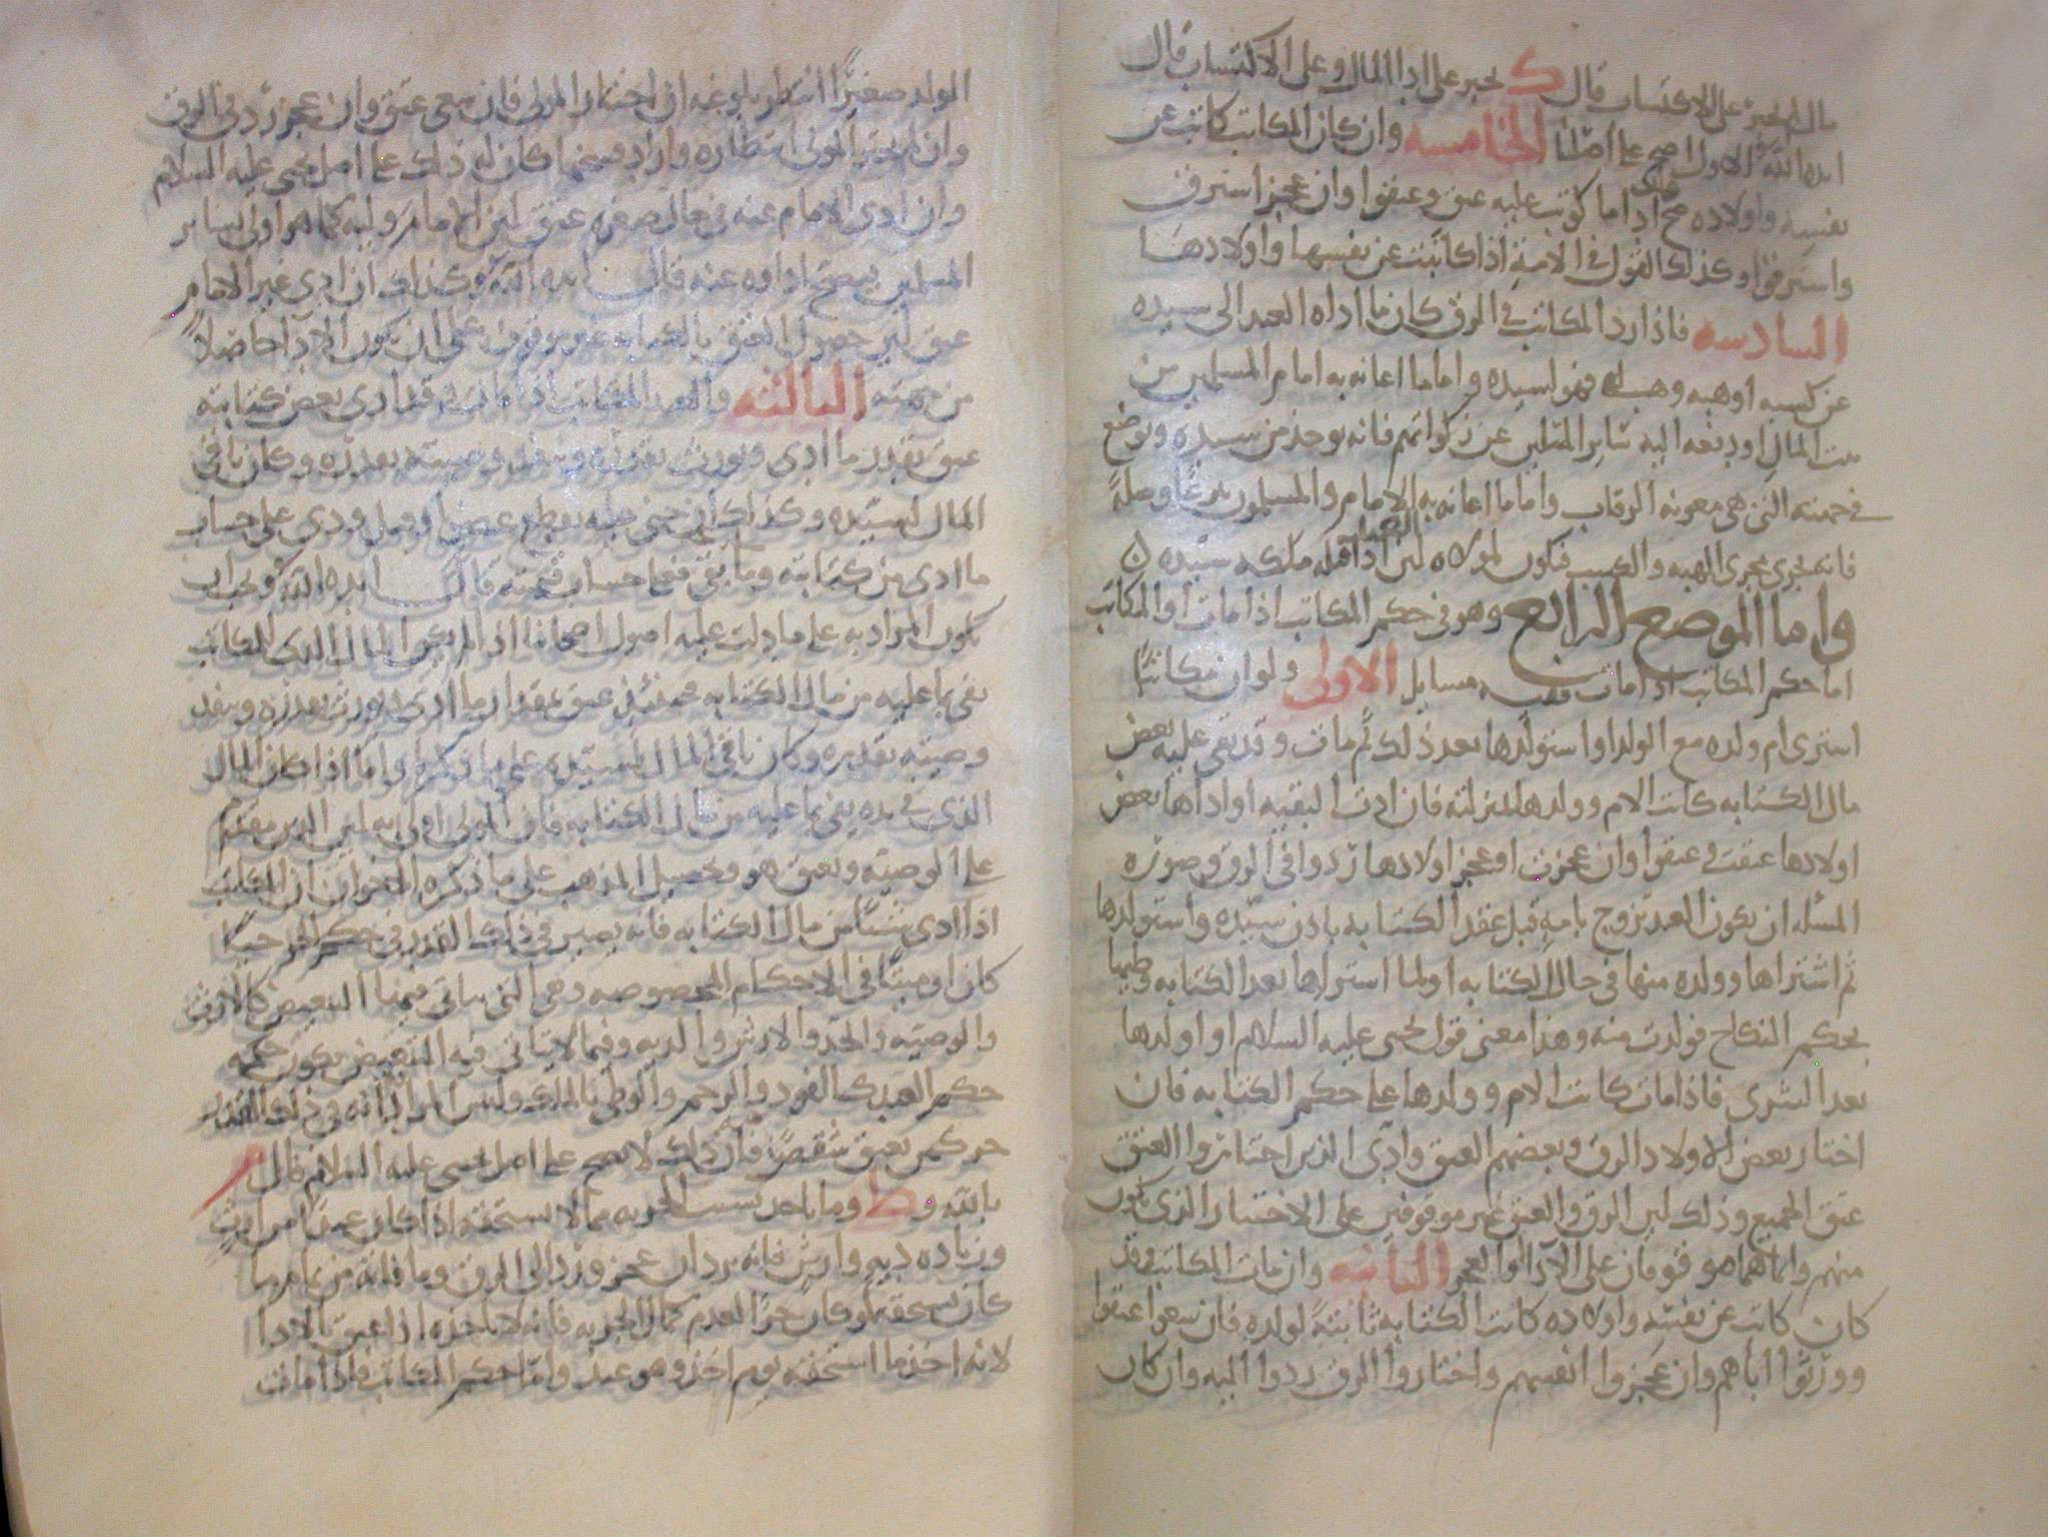 مال لم يجبر على الاكتساب قال ك يجبر على ادا المال وعلى الاكتساب قال
ايده الله والاول اصح على اصلنا الخامسه وان كان المكاتب كاتب عن
نفسه واولاده صح فان ادا ما كوتب عليه عتق وعتقوا وان عجز استرق
واسترقوا وكذلك القول في الامة اذا كاتبت عن نفسها واولادها
السادسه فاذا رد المكاتب في الرق كان ما اداه العبد الى سيده
عن كسبه او هبه وهبت له فهو لسيده واما ما اعانه به امام المسلمين من
بيت المال او دفعه اليه ساير المسلمين عن زكواتهم فانه يوخذ من سيده ويوضع
في جهته التي هي معونه الرقاب واما ما اعانه به الامام والمسلمون تبرعا وصلة
فانه يجري مجرى الهبه والكسب فيكون لمولاه لان العبد اذا قبله ملكه سيده
واما الموضع الرابع وهو في حكم المكاتب اذا مات او المكاتب
اما حكم المكاتب اذا مات ففيه مسايل الاولى ولو ان مكاتبا
اشترى ام ولده مع الولد او استولدها بعد ذلك ثم مات وقد بقى عليه بعض
مال الكتابه كانت الام وولدها بمنزلته فان ادت البقيه او اداها بعض
اولادها عتقت وعتقوا وان عجزت او عجز اولادها ردوا في الرق وصوره
المسله ان يكون العبد تزوج بامة قبل عقد الكتابه باذن سيده واستولدها
ثم اشتراها وولده منها في حال الكتابه او لما اشتراها بعد الكتابه وطيها
بحكم النكاح فولدت منه وهذا معنى قول يحيى عليه السلام او اولدها
بعد الشرى فاذا مات كانت الام وولدها على حكم الكتابه فان
اختار بعض الاولاد الرق وبعضهم العتق وادى الذين اختاروا العتق
عتق الجميع وذلك لان الرق والعتق غير موقوفين على الاختيار الذي يكون
منهم وانما هما موقوفان على الادا او العجز الثانيه وان مات المكاتب وقد
كان كاتب عن نفسه واولاده كانت الكتابه ثابتة لولده فان سعوا عتقوا
وورثوا اباهم وان عجزوا انفسهم واختاروا الرق ردوا اليه وان كان
الولد صغيرا انتظر بلوغه ان اختار المولى فان سعى عتق وان عجز رد في الرق
وان لم يختر المولى انتظاره واراد فسخها كان له ذلك على اصل يحيى عليه السلام
وان ادى الامام عنه في حال صغره عتق لان الامام وليه كما هو اولى بساير
المسلمين فيصح اداوه عنه قال ايده الله وكذلك ان ادى غير الامام
عتق لان حصول العتق بالكتابه غير موقوف على ان يكون الادا حاصلا
من جهته الثالثه والعبد المكاتب اذا مات وقد ادى بعض كتابته
عتق بقدر ما ادى ويورث بقدره وينفذ وصيته بقدره وكان باقي
المال لسيده وكذلك ان جني عليه بقطع عضو او قتل ودي على حساب
ما ادى من كتابته وما بقي فعلى حساب قيمته قال ايده الله ويجب ان
يكون المراد به على ما دلت عليه اصول اصحابنا اذا لم يكن المال الذي للمكاتب
يفي بما عليه من مال الكتابه فحينئذ عتق بمقدار ما ادى ويورث بقدره وينفذ
وصيته بقدره وكان باقي المال لسيده على ما ذكره واما اذا كان المال
الذي في يده يفي بما عليه من مال الكتابه فان المولى اولى به لان الدين مقدم
على الوصيه ويعتق هو وتحصيل المذهب على ما ذكره الاخوان ان المكاتب
اذا ادى شيئا من مال الكتابه فانه يصير في ذلك القدر في حكم الحر حيا
كان او ميتا في الاحكام المخصوصه وهي التي يتاتى فيها التبعيض كالارث
والوصيه والحد والارش والديه وفيما لا يتاتى فيه التبعيض يكون حكمه
حكم العبد كالقود والرجم والوطي بالملك وليس المراد انه في ذلك القدر
حر كمن يعتق شقصا فان ذلك لا يصح على اصل يحيى عليه السلام قال م
بالله و ط وما ياخذ بسبب الحريه مما لا يستحقه اذا كان عبدا من ارث
وزياده ديه وارش فانه يرد ان عجز ورد الى الرق وما فاته من تمام ما
كان يستحقه لو كان حرا لعدم كمال الحريه فانه لا ياخذه اذا عتق بالادا
لانه اخذ ما استحقه يوم اخذ وهو عبد واما حكم المكاتب فاذا مات